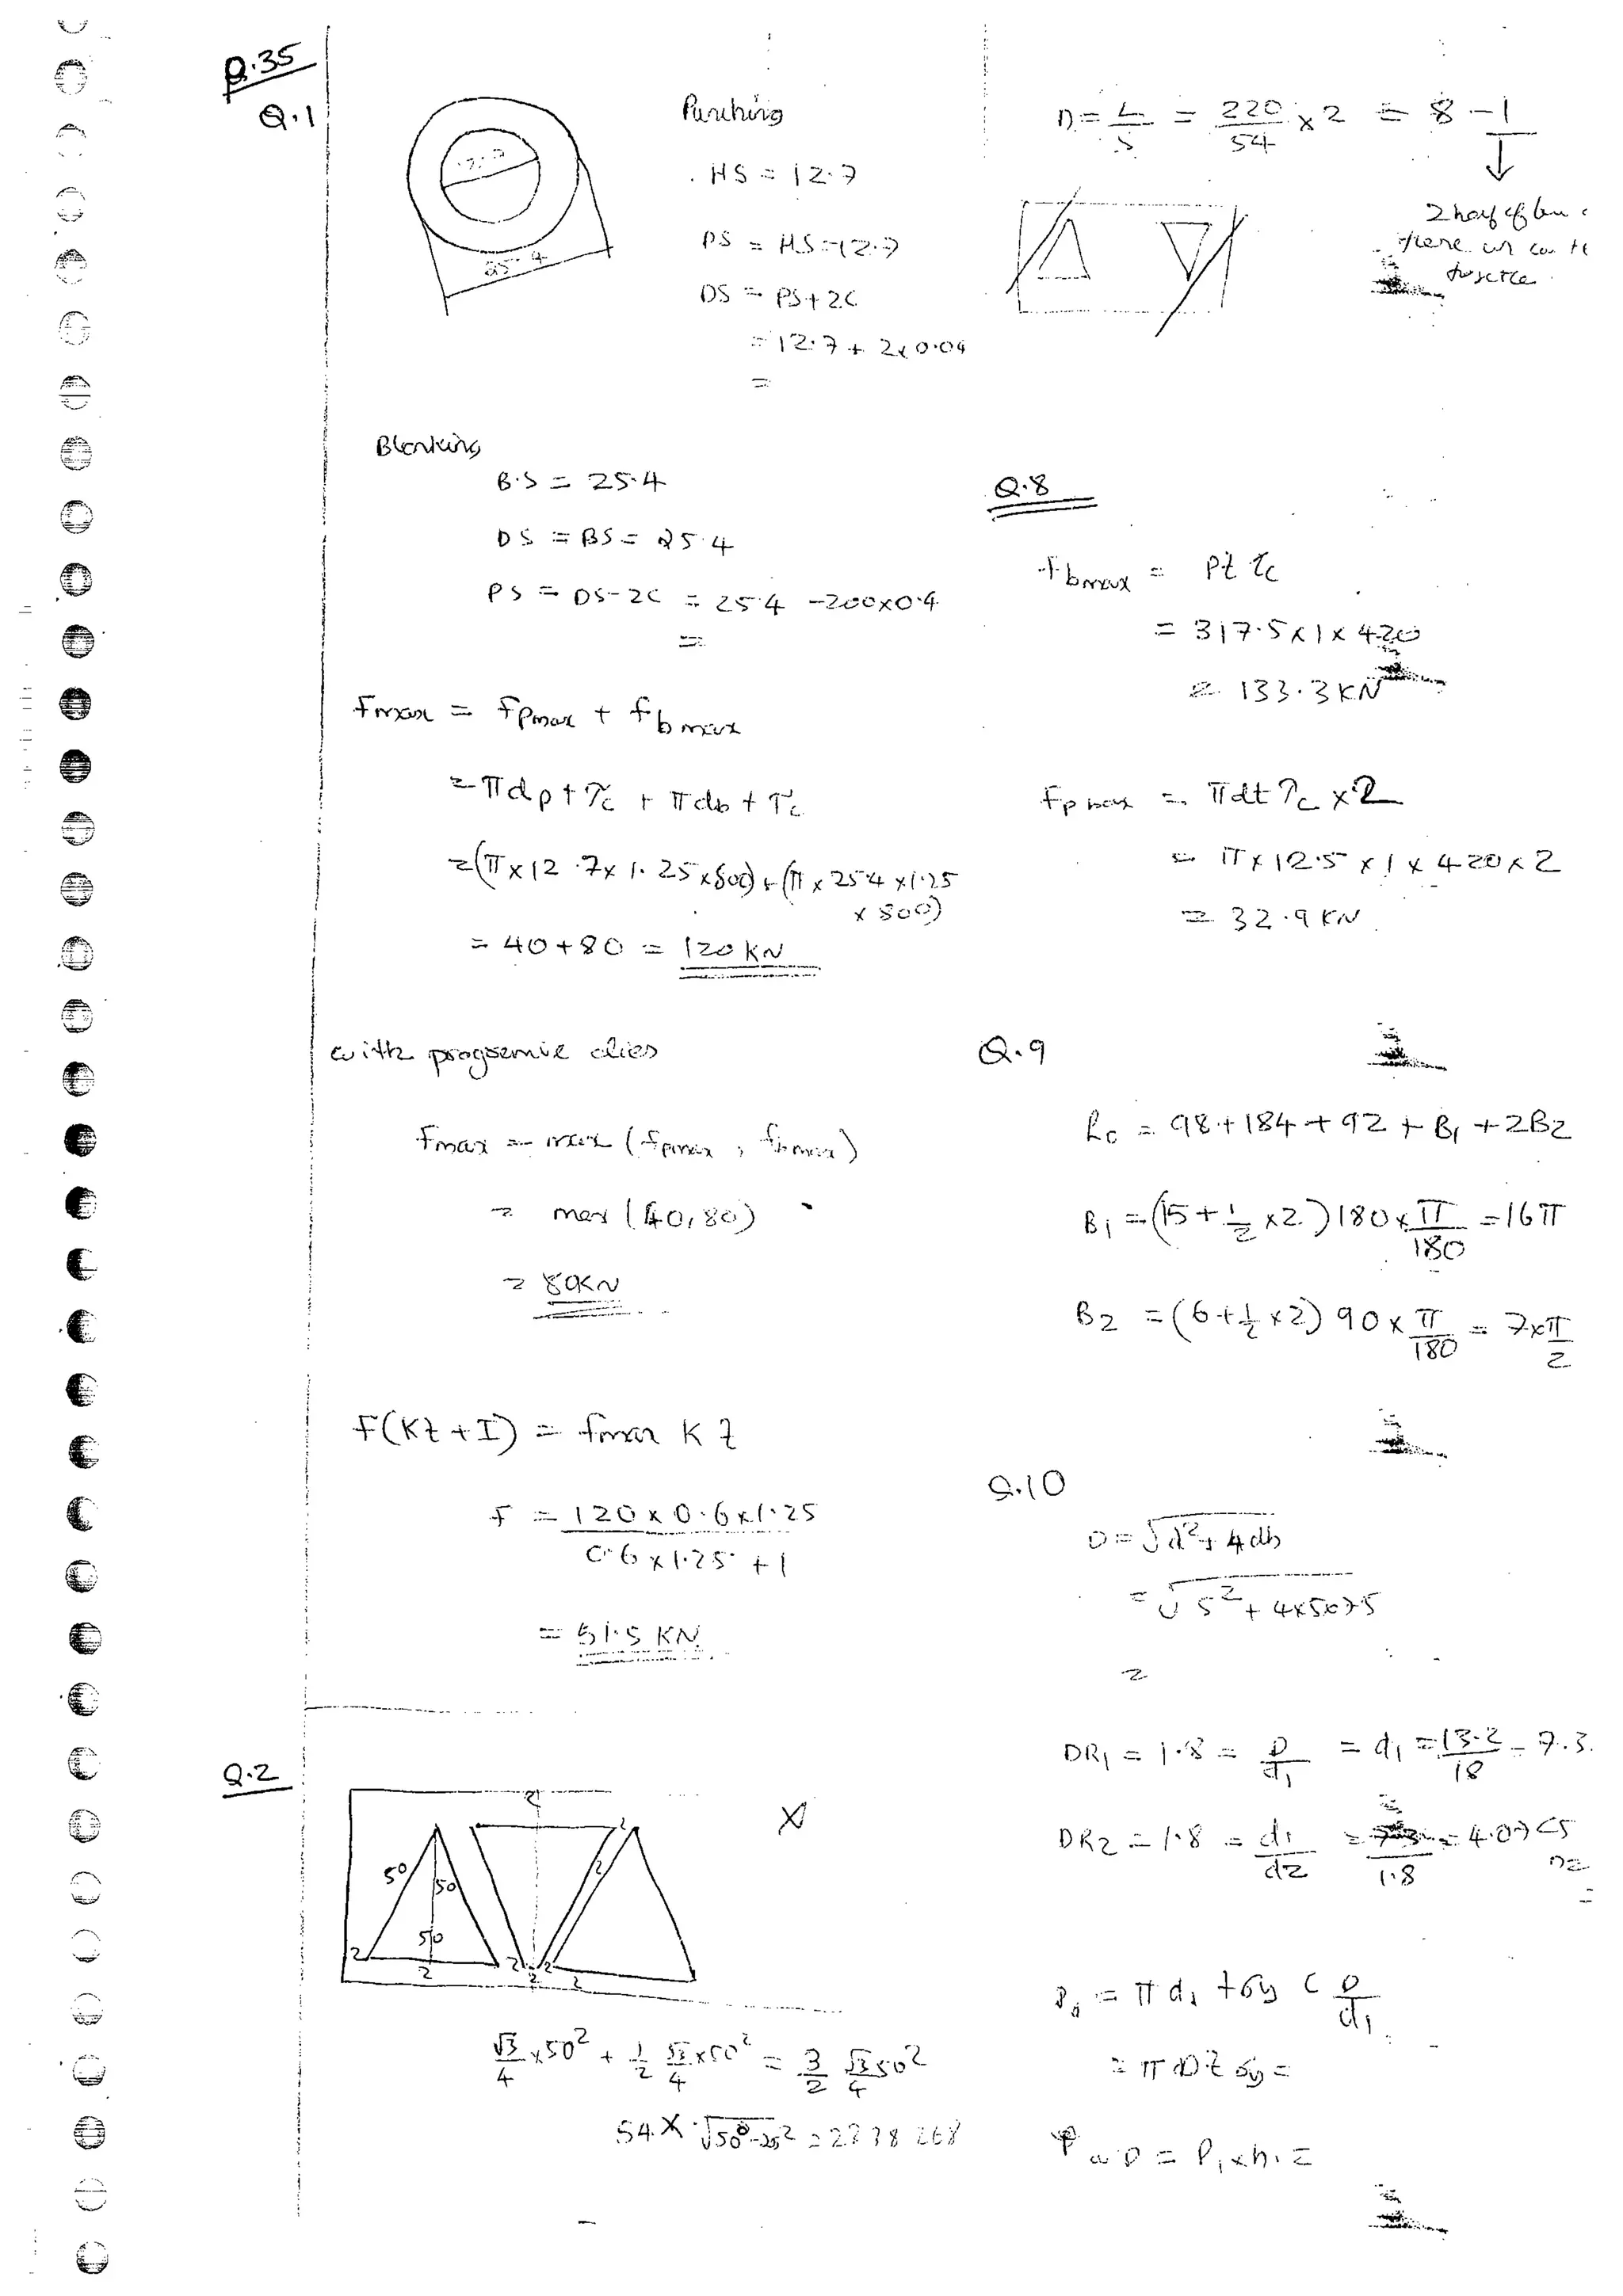 P.35
Q.1
12.7
25.4
Punching
HS = 12.7
PS = HS = 12.7
DS = PS + 2C
= 12.7 + 2x0.04
=
Blanking
B.S = 25.4
DS = BS = 25.4
PS = DS-2C = 25.4 -200x0.4
=
Fmax = Fpmax + fbmax
= πdptτc + πdbtτc
= (π x 12.7x 1.25x800) + (π x 25.4 x1.25
x 800)
= 40+80 = 120 KN
with progressive dies
Fmax = max (fpmax, fbmax)
= max (40,80)
= 80KN
F(Kt + I) = fmax K t
F = 120 x 0.6x1.25
0.6 x1.25 + 1
= 51.5 KN
Q.2
2
2
50
50
50
2
2
2
2
2
2
2
X
√3/4 x50² + 1/2 √3/4 x50² = 3/2 √3/4 50²
54 X √50²-25² = 2338.268
n = L/S = 220/54 x2 = 8 - 1
↓
2 half of
there
Q.8
fbmax = Pt τc
= 317.5x1x 420
= 133.3 KN
Fpmax = πdt τc x 2
= π x 12.5 x 1 x 420x2
= 32.9 KN
Q.9
Lo = 98+184+92 + B1 +2B2
B1 = (15+ 1/2 x2)180x π/180 = 16π
B2 = (6+ 1/2 x2) 90x π/180 = 7xπ/2
Q.10
D = √d²+4dh
= √5²+4x5x7.5
=
DR1 = 1.8 = D/d1 = d1 = 13.2/18 = 7.3.
DR2 = 1.8 = d1/d2 = 7.3/1.8 = 4.07<5
n=
=
P1 = π d1 tσy ( D/d1
= π D t σy =
W.D = P1xh1 =